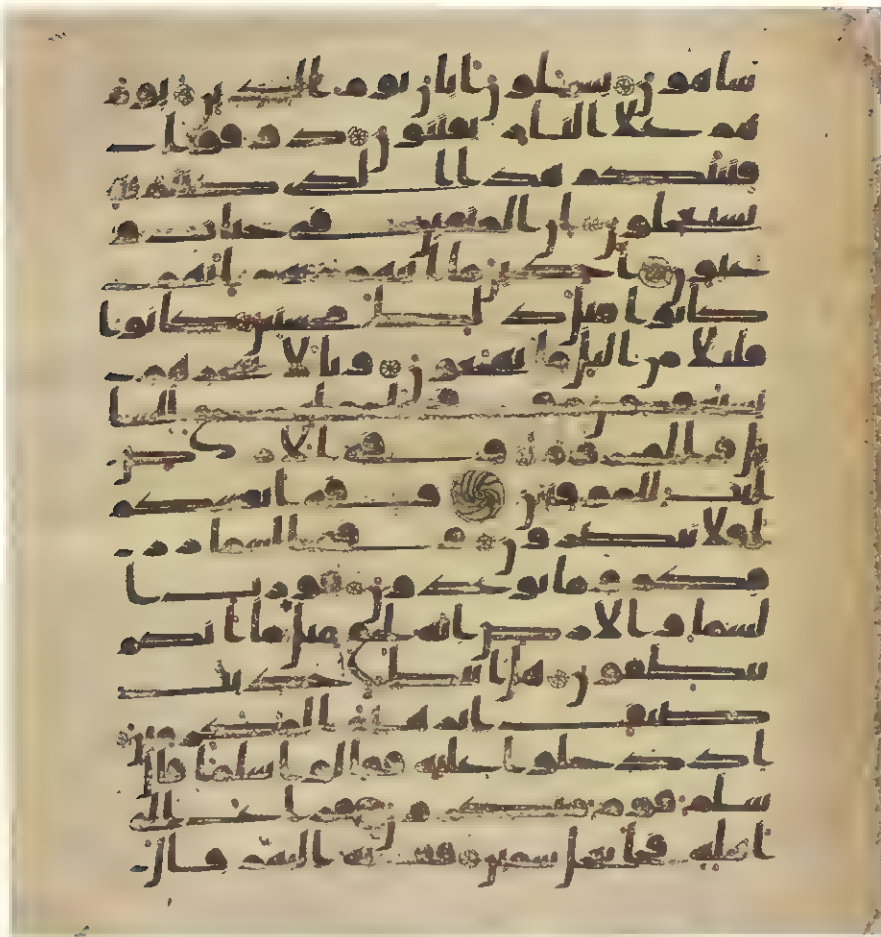 ساهون يسلون ايان يوم الدين يوم
هم على النار يفتنون ذوقوا
فتنتكم هذا الذي كنتم به
تستعجلون ان المتقين في جنات و
عيون اخذين ما اتيهم ربهم انهم
كانوا قبل ذلك محسنين كانوا
قليلا من اليل ما يهجعون وبالاسحرهم
يستغفرون وفي امولهم حق للسا
ىل والمحروم وفي الارض
ايت للموقنين وفي انفسكم
افلا تبصرون وفي السما رز
قكم وما توعدون فورب ا
لسما والارض انه لحق مثل ما انكم
تنطقون هل اتيك حديث
ضيف ابرهيم المكرمين
اذ دخلوا عليه فقالوا سلما قال
سلم قوم منكرون فراغ الى
اهله فجا بعجل سمين فقربه اليهم قال